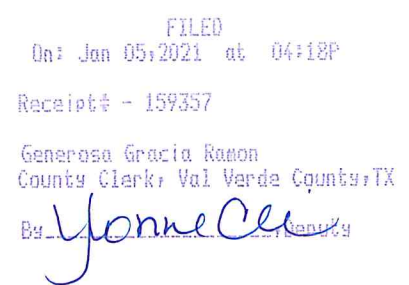 FILED
On: Jan 05,2021 at 04:18P
Receipt# - 159357
Generosa Gracia Ramon
County Clerk, Val Verde County,TX
By Yonne ,Deputy